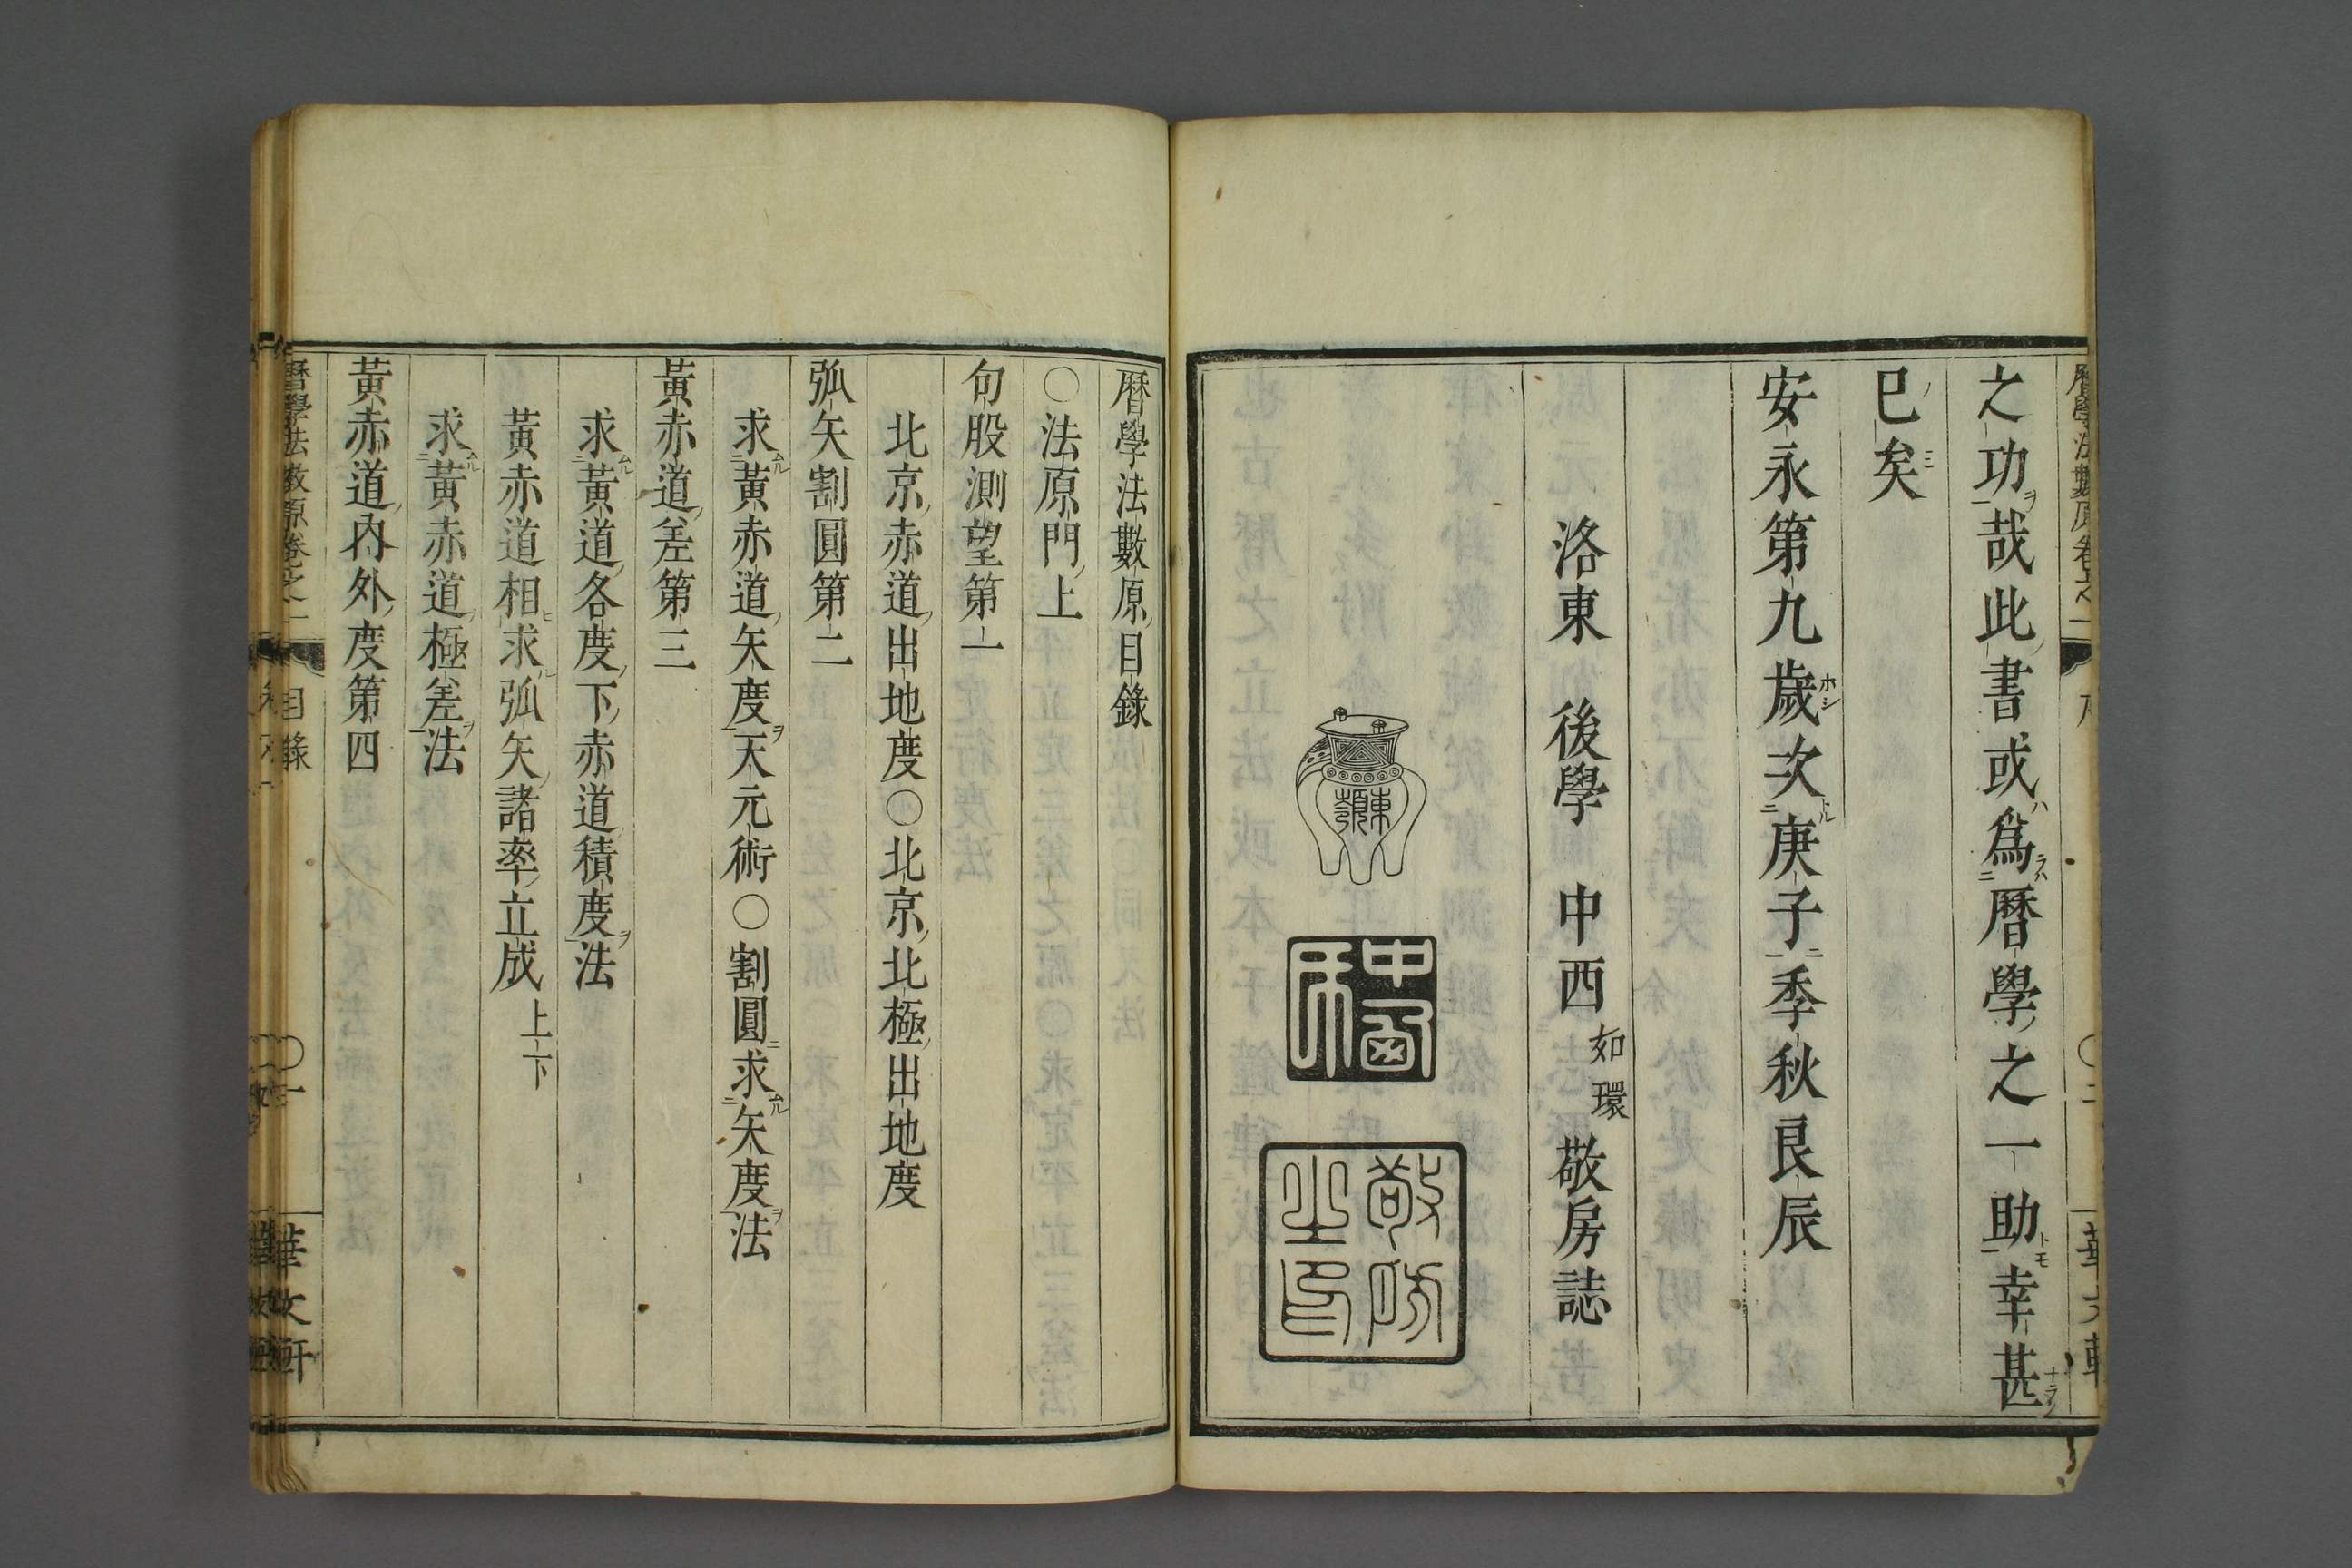 之功哉此書或爲曆學之一助幸甚
已矣
安永第九歲次庚子季秋良辰
洛東 後學 中西如環敬房誌
東嶺
中西氏
敬房之印
曆學法數原目錄
○法原門上
句股測望第一
北京赤道出地度○北京北極出地度
弧矢割圓第二
求黃赤道矢度天元術○割圓求矢度法
黃赤道差第三
求黃道各度下赤道積度法
黃赤道相求弧矢諸率立成上下
求黃赤道極差法
黃赤道內外度第四
曆學法數原卷之一 目錄 ○一 華文軒